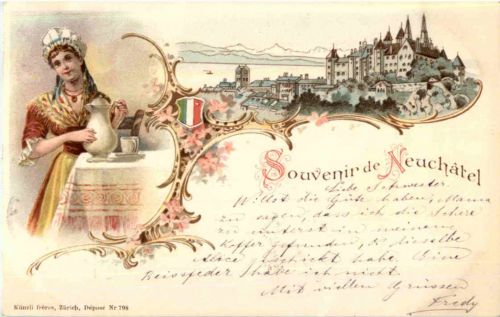 Souvenir de Neuchâtel
Liebe Schwester.
Willst die Güte haben, Mama
zu sagen, dass ich die Schere
zu unterst in meinem
Koffer gefunden, & dieselbe
Alice geschickt habe. Eine
Reissfeder habe ich nicht.
Mit vielen Grüssen
Fredy
Künzli frères, Zürich, Dépose Nr 798